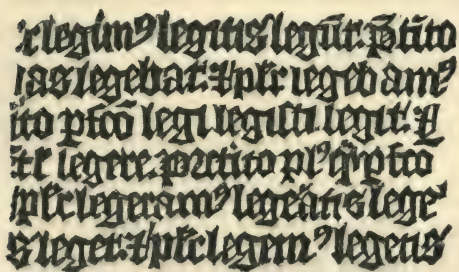 legimꝰ legitis legūt. p̄tito
ias legebat. ⁊ pl'r legebamꝰ
ito pfcō legi legisti legit. ⁊
legere. plꝰq̄ꝑfco
pl'r legeramꝰ legeātis lege
s leget. ⁊ pl'r legemꝰ legetis